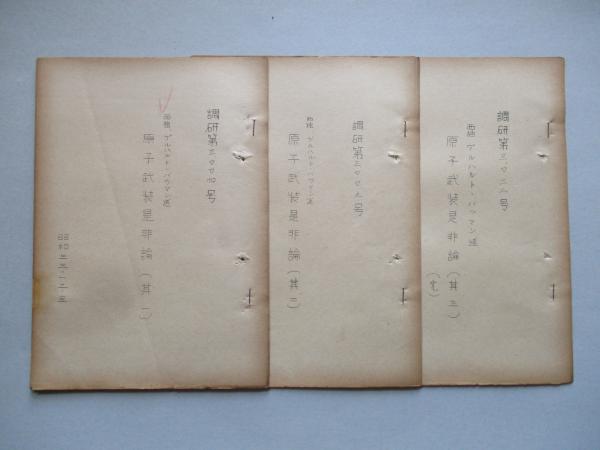 調研第三〇〇四号
西独 ゲルハルト・バウマン述
原子武装是非論(其一)
昭和三三・一・二五
調研第三〇〇九号
西独 ゲルハルト・バウマン述
原子武装是非論(其二)
調研第三〇二二号
西独 ゲルハルト・バウマン述
原子武装是非論(其三)
(完)